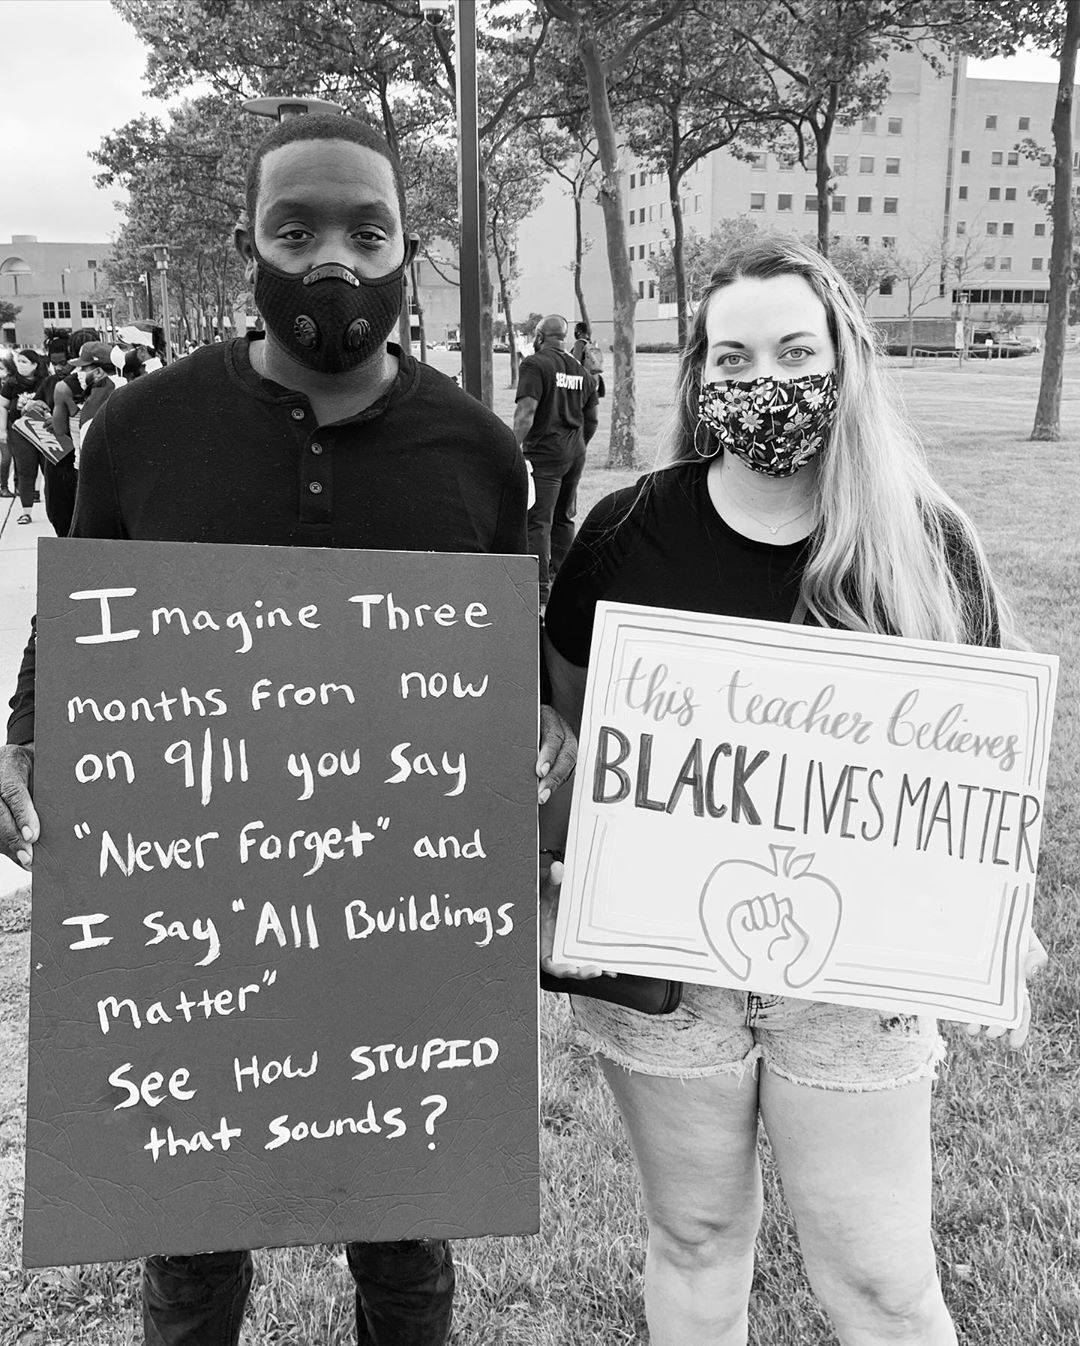 SECURITY
Imagine Three
months From now
on 9/11 you say
"Never Forget" and
I say "All Buildings
Matter"
See How STUPID
that sounds?
this teacher believes
BLACK LIVES MATTER